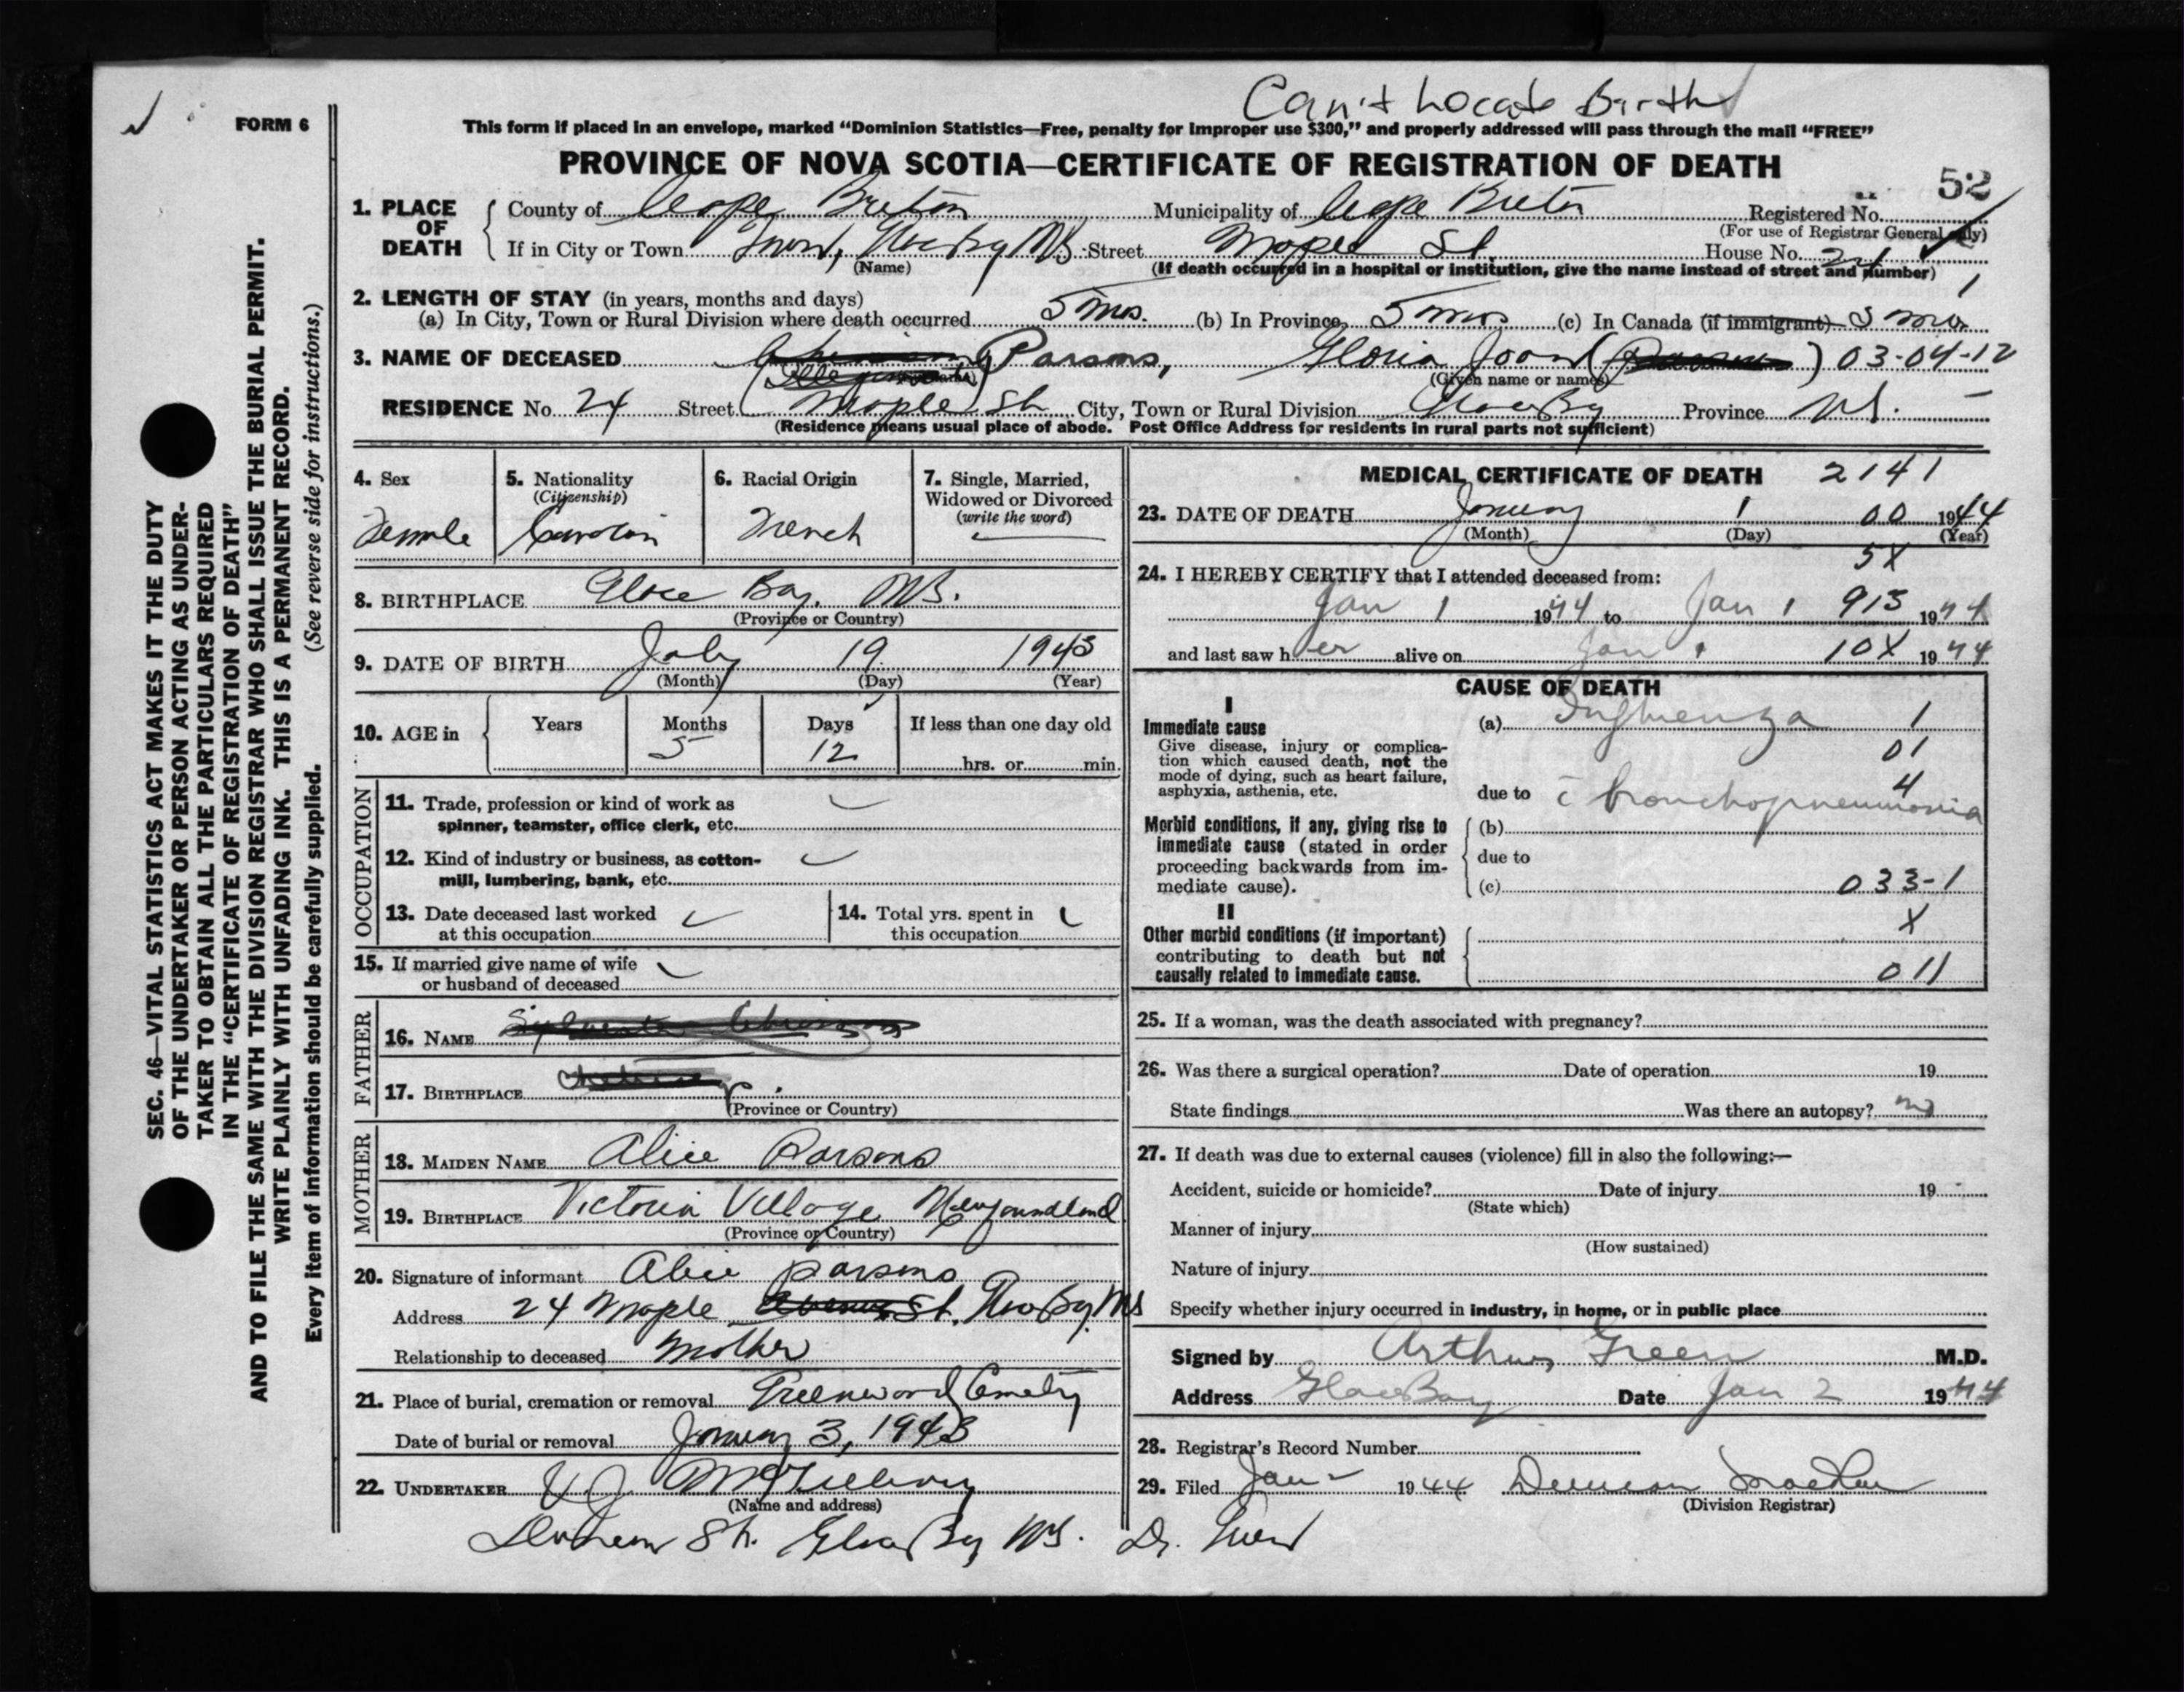 Can't Locate Birth
FORM 6
This form if placed in an envelope, marked “Dominion Statistics—Free, penalty for improper use $300,” and properly addressed will pass through the mail “FREE”
PROVINCE OF NOVA SCOTIA—CERTIFICATE OF REGISTRATION OF DEATH
52
1. PLACE OF DEATH
County of Cape Breton Municipality of Cape Breton Registered No.
(For use of Registrar General only)
If in City or Town Town, Glace Bay NS Street Maple St. House No. 24
(Name) (If death occurred in a hospital or institution, give the name instead of street and number) 1
2. LENGTH OF STAY (in years, months and days)
(a) In City, Town or Rural Division where death occurred 5 mos. (b) In Province 5 mos (c) In Canada (if immigrant) 5 mos
3. NAME OF DECEASED Parsons, Gloria Joan 03-04-12
(Given name or names)
RESIDENCE No. 24 Street Maple St City, Town or Rural Division Glace Bay Province NS.
(Residence means usual place of abode. Post Office Address for residents in rural parts not sufficient)
SEC. 46—VITAL STATISTICS ACT MAKES IT THE DUTY
OF THE UNDERTAKER OR PERSON ACTING AS UNDER-
TAKER TO OBTAIN ALL THE PARTICULARS REQUIRED
IN THE “CERTIFICATE OF REGISTRATION OF DEATH”
AND TO FILE THE SAME WITH THE DIVISION REGISTRAR WHO SHALL ISSUE THE BURIAL PERMIT.
WRITE PLAINLY WITH UNFADING INK. THIS IS A PERMANENT RECORD.
Every item of information should be carefully supplied. (See reverse side for instructions.)
4. Sex
Female
5. Nationality
(Citizenship)
Canadian
6. Racial Origin
French
7. Single, Married,
Widowed or Divorced
(write the word)
8. BIRTHPLACE Glace Bay, NS.
(Province or Country)
9. DATE OF BIRTH July 19 1943
(Month) (Day) (Year)
10. AGE in Years Months Days If less than one day old
5 12 hrs. or min.
OCCUPATION
11. Trade, profession or kind of work as
spinner, teamster, office clerk, etc.
12. Kind of industry or business, as cotton-
mill, lumbering, bank, etc.
13. Date deceased last worked
at this occupation
14. Total yrs. spent in
this occupation
15. If married give name of wife
or husband of deceased
FATHER
16. NAME
17. BIRTHPLACE
(Province or Country)
MOTHER
18. MAIDEN NAME Alice Parsons
19. BIRTHPLACE Victoria Village Newfoundland
(Province or Country)
20. Signature of informant Alice Parsons
Address 24 Maple St. Glace Bay, NS
Relationship to deceased Mother
21. Place of burial, cremation or removal Greenwood Cemetery
Date of burial or removal January 3, 1943
22. UNDERTAKER V.J. McGillivray
(Name and address)
St. Glace Bay NS.
MEDICAL CERTIFICATE OF DEATH 2141
23. DATE OF DEATH January 1 00 1944
(Month) (Day) (Year)
5X
24. I HEREBY CERTIFY that I attended deceased from:
Jan 1 1944 to Jan 1 913 1944
and last saw her alive on Jan 1 10X 1944
CAUSE OF DEATH
I
Immediate cause
Give disease, injury or complica-
tion which caused death, not the
mode of dying, such as heart failure,
asphyxia, asthenia, etc.
(a) Influenza 1
01
4
due to c̄ bronchopneumonia
Morbid conditions, if any, giving rise to
immediate cause (stated in order
proceeding backwards from im-
mediate cause).
(b)
due to
(c) 033-1
II
X
Other morbid conditions (if important)
contributing to death but not
causally related to immediate cause.
011
25. If a woman, was the death associated with pregnancy?
26. Was there a surgical operation? Date of operation 19
State findings Was there an autopsy? no
27. If death was due to external causes (violence) fill in also the following:—
Accident, suicide or homicide? Date of injury 19
(State which)
Manner of injury
(How sustained)
Nature of injury
Specify whether injury occurred in industry, in home, or in public place
Signed by Arthur Green M.D.
Address Glace Bay Date Jan 2 1944
28. Registrar's Record Number
29. Filed Jan 2 1944 Duncan
(Division Registrar)
Dr. Green